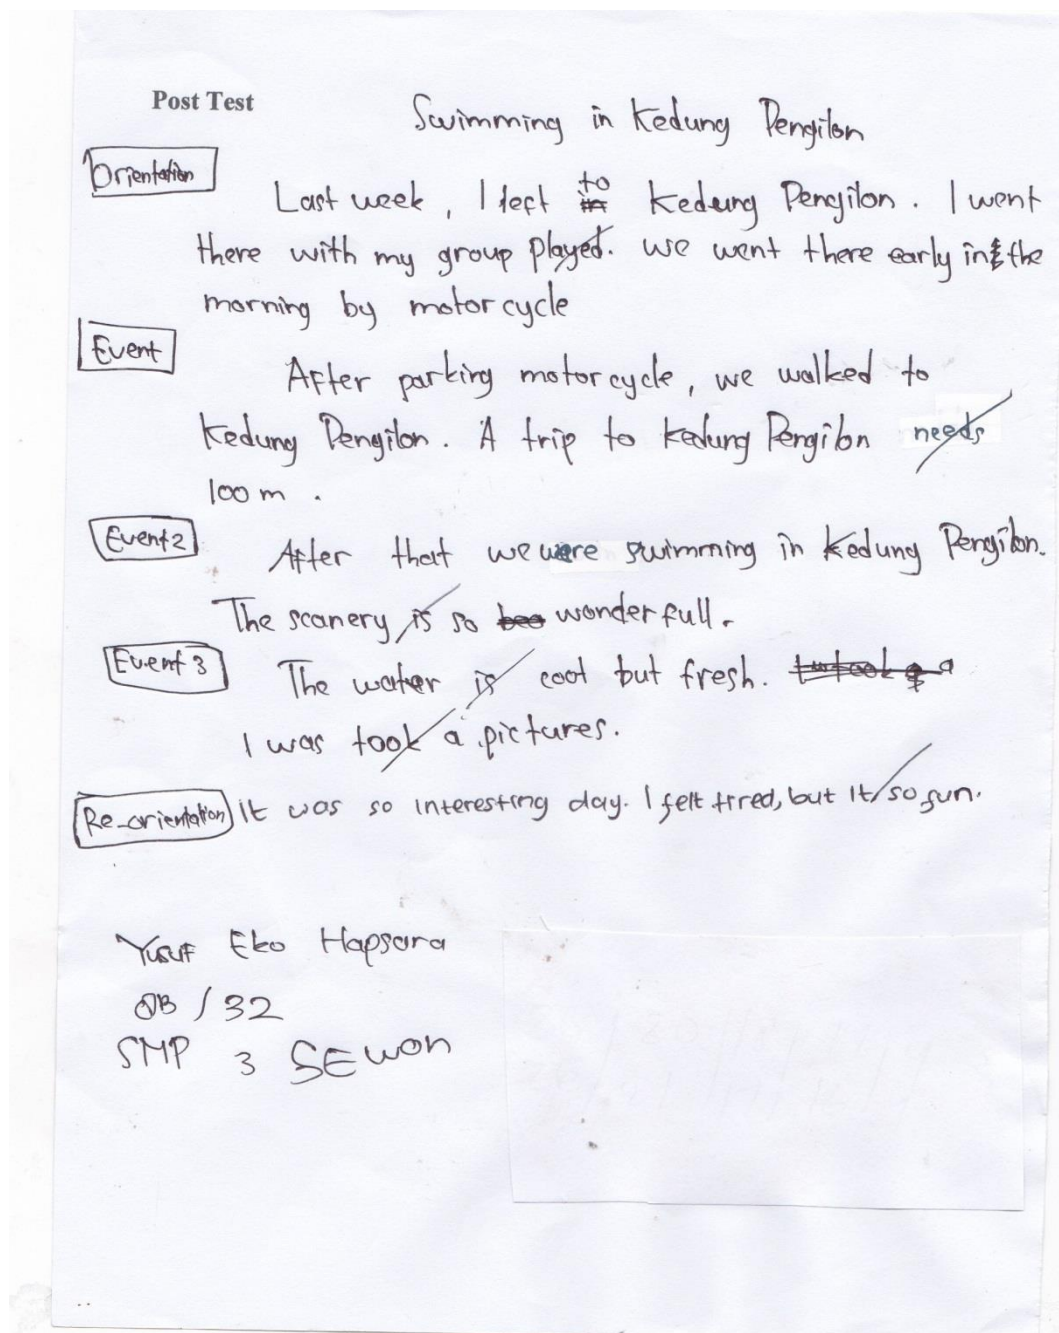 Post Test
Swimming in Kedung Pengilon
Orientation
Last week, I left to
in Kedung Pengilon. I went
there with my group played. we went there early in the
morning by motor cycle
Event
After parking motor cycle, we walked to
Kedung Pengilon. A trip to kedung Pengilon needs
100 m.
Event 2
After that we were swimming in Kedung Pengilon.
The scanery is so wonderfull.
Event 3
The water is cool but fresh. a
I was took a pictures.
Re-orientation It was so interesting day. I felt tired, but it so fun.
Yusuf Eko Hapsara
/ 32
SMP 3 SEWON